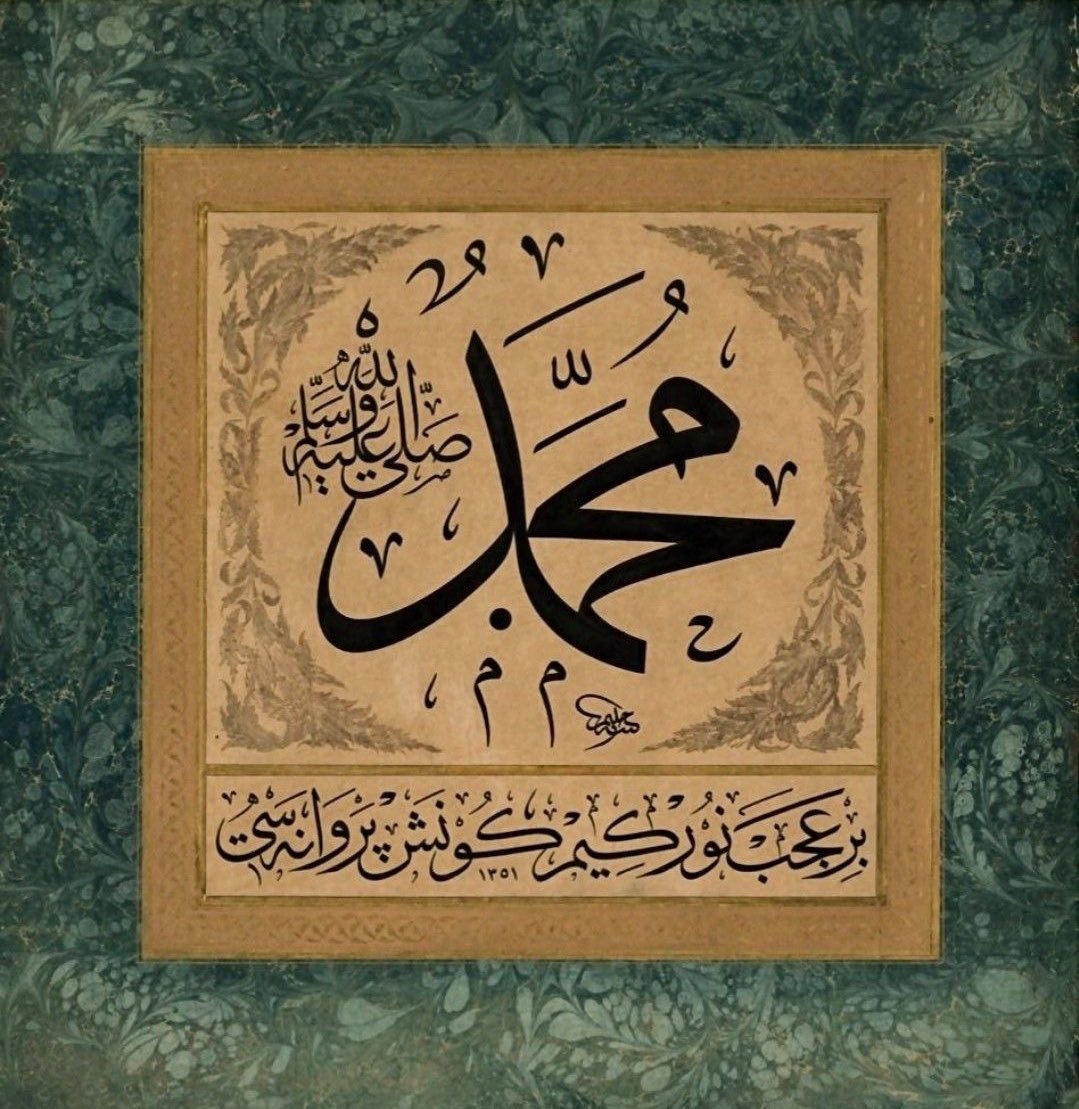 مُحَمَّدٌ
صَلَّى اللّٰهُ عَلَيْهِ وَسَلَّمَ
بِر عَجَبْ نُورْ كِيمْ كُونَشْ پَرْوَانَه سَيْ
١٣٥١